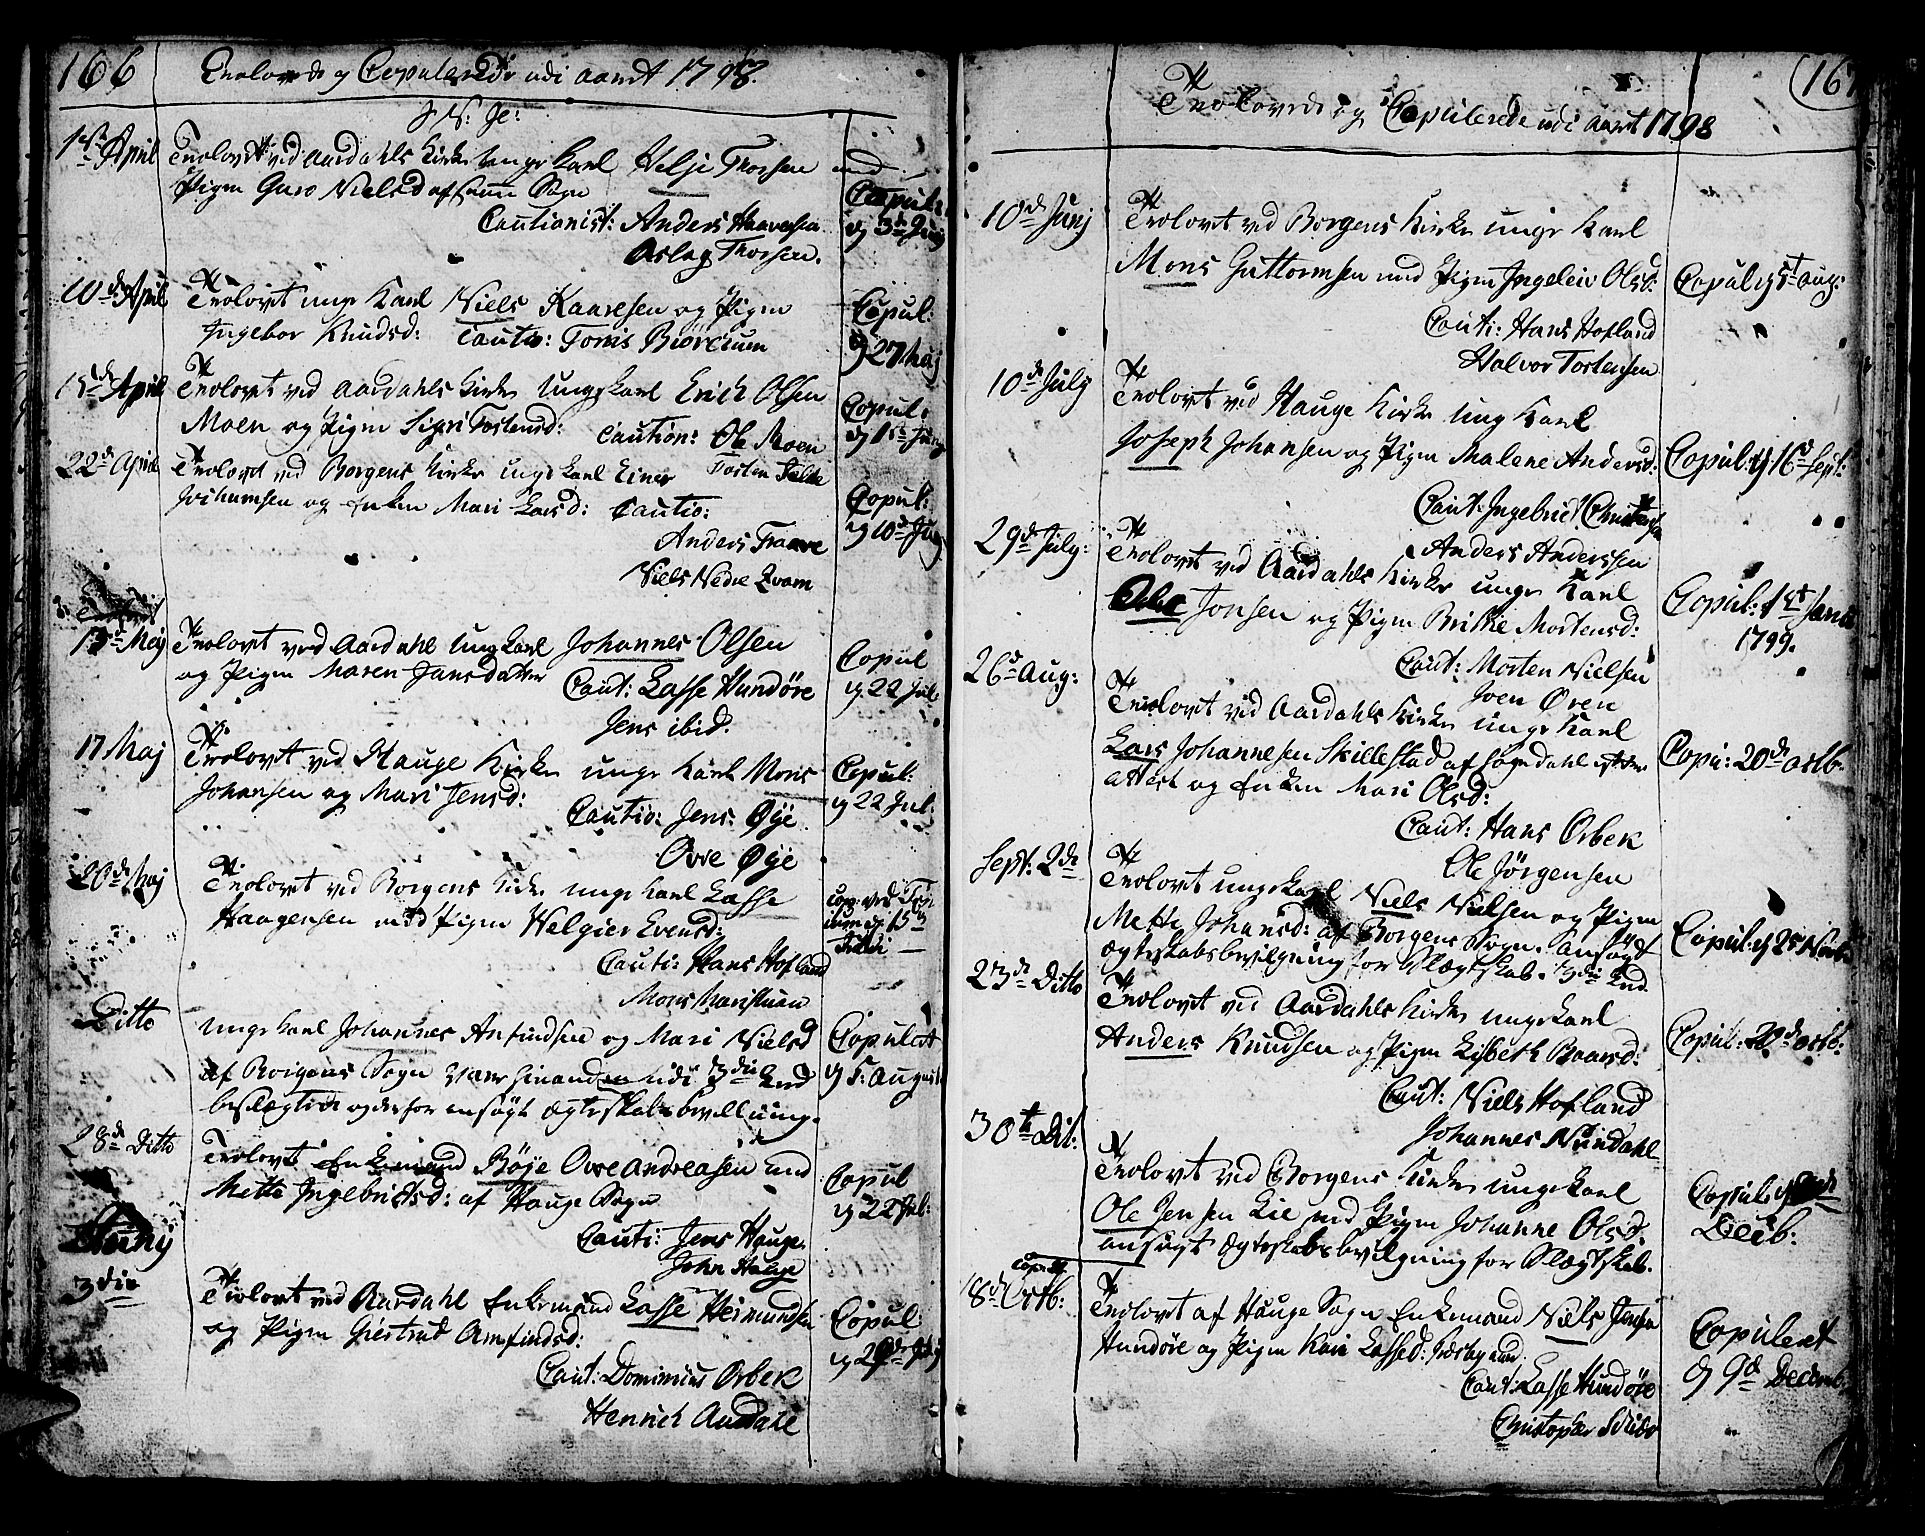 166
Trolovede og Copulerede udi aaret 1798.
J: N: Je:
1st April
Trolovet ved Aardahls Kirke unge karl Helje Thorsen med
Pigen Guro Nielsd af samme Sogn
Cautionist: Anders Haavesen
Aslag Thorsen.
Copul:
d 3de Junj
10de April
Trolovet unge Karl Niels Kaaresen og Pigen
Ingebor Knudsd: Cautio: Tonis Biørcum
Copul:
d 27 Maj
15de April
Trolovet ved Aardahls Kirke Ungekarl Erich Olsen
Moen og Pigen Sigri Tostensd: Caution: Ole Moen
Tosten
Copul:
22de April
Trolovet ved Borgens Kirke ungekarl Einer
Jochumsen og Enken Mari Larsd: Cautio:
Anders Traave
Niels Nedre Qvam
Copul:
d 10de Junj
13de Maj
Trolovet ved Aardahl Ungkarl Johannes Olsen
og Pigen Maren Jansdatter
Caut: Lasse Hundøre
Jens ibid.
Copul
d 22 Jul:
17 Maj
Trolovet ved Hauge Kirke unge Karl Mons
Johansen og Mari Jensd:
Cautio: Jens Øye
Ovre Øye
Copul:
d 22 Jul:
20de Maj
Trolovet ved Borgens Kirke unge karl Lasse
Haagensen med Pigen Helgier Evensd:
Cauti: Hans Hofland
Mons
cop: ved
Ditto
unge karl Johannes Anfindsen og Mari Nielsd
af Borgens Sogn ere hinanden udi 3die Led
beslægtede og derfor ansøgt Ægteskabsbevillning.
Copuleret
d 5: August
28de Ditto
Trolovet Enkemand Bøje Ovre Andreasen med
Mette Ingebrictsd: af Hauge Sogn
Cauti: Jens Hauge
John Hauge
Copul
d 22 Jul:
Junij
3die
Trolovet ved Aardahl Enkemand Lasse Heimundsen
og Pigen Giertrud Amfindsd:
Caut: Dominicus Orbek
Henrich Aardahl
Copul:
167
Trolovede og Copulerede udi aaret 1798
10de Junj
Trolovet ved Borgens Kirke unge Karl
Mons Guttormsen med Pigen Ingeleiv Olsd:
Cauti: Hans Hofland
Halvor Tostensen
Copul d 5t aug:
10de July
Trolovet ved Hauge Kirke ung Karl
Joseph Johansen og Pigen Malene Andersd:
Caut: Ingebrict Christensen
Anders Anderssen
Copul: d 16de Sept:
29de July:
Trolovet ved Aardahls Kirke unge Karl
Jonsen og Pigen Brithe Mortensd:
Caut: Morten Nielsen
Joen Øren
Copul: 1st Janu
1799.
26de Aug:
Trolovet ved Aardahls Kirke unge Karl
Lars Johannesen Skillestad af Sogndahl efter
attest og Enken Mari Olsd:
Caut: Hans Orbek
Ole Jørgensen
Copu: 20de Octb.
Sept: 2de
Trolovet ungekarl Niels Nielsen og Pigen
Mette Johansd: af Borgens Sogn. ansøgt
Ægteskabsbevilgning for Slægtskab. 3die Led
Copul: d 25 Novb
23de Ditto
Trolovet ved Aardahls Kirke ungekarl
Anders Knudsen og Pigen Lisbeth Baarsd:
Caut: Niels Hofland
Johannes Nundahl
Copul: 20de Octb:
30te Dit:
Trolovet ved Borgens Kirke ungekarl
Ole Jensen Lie med Pigen Johanne Olsd:
ansøgt Ægteskabsbevilgning for Slægtskab.
Copul: d
Decb:
18de Octb:
Trolovet af Hauge Sogn Enkemand Niels Jensen
Hundøre og Pigen Kari Lassed:
Caut: Lasse Hundøre
Christopher
Copuleret
d 9de Decemb